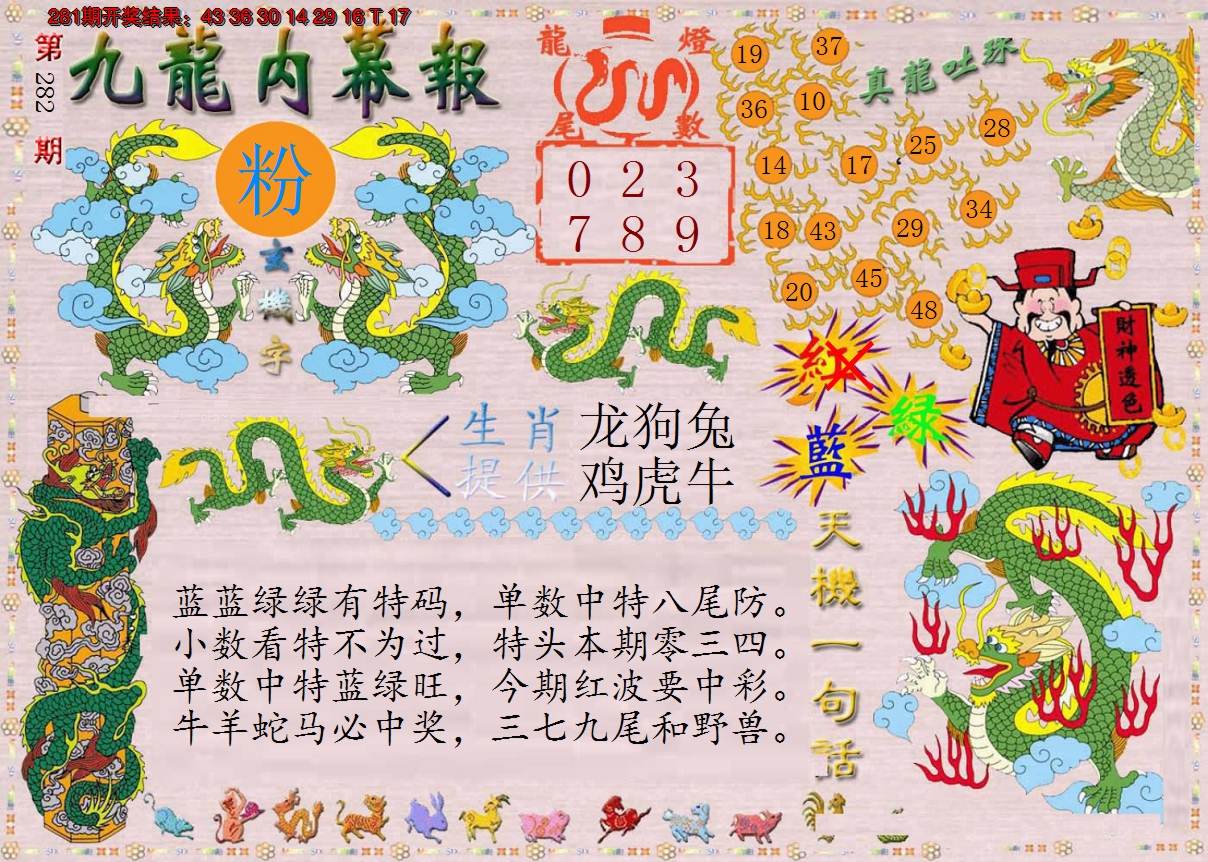 281期开奖结果：43 36 30 14 29 16 T 17
第282期
九龍内幕報
龍燈
尾數
0 2 3
7 8 9
粉
玄機字
真龍吐珠
19 37
36 10
14 17 25 28
18 43 29 34
20 45 48
財神透色
紅
綠
藍
生肖 龙狗兔
提供 鸡虎牛
天機一句话
蓝蓝绿绿有特码，单数中特八尾防。
小数看特不为过，特头本期零三四。
单数中特蓝绿旺，今期红波要中彩。
牛羊蛇马必中奖，三七九尾和野兽。